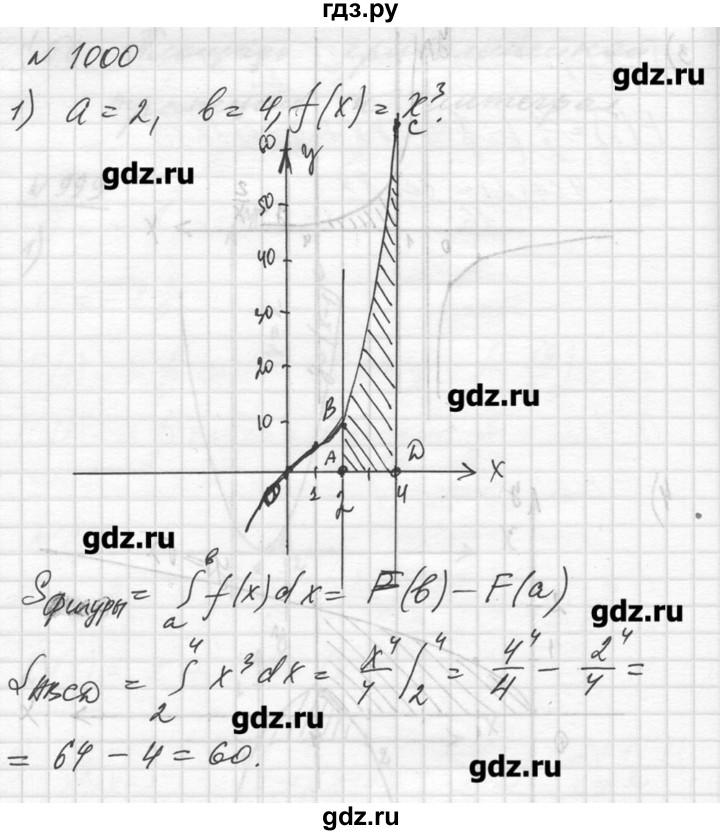 гдз.ру
N 1000
gdz.ru
1) a = 2, в = 4, f(x) = x³.
gdz.ru
C
60 y
50
40
30
20
gdz.ru
B
10
A D
0 1 2 4 x
gdz.ru
Sфигуры = ∫ₐᵇ f(x)dx = F(в) − F(a)
gdz.ru
S_ABCD = ∫₂⁴ x³dx = x⁴/4 |₂⁴ = 4⁴/4 − 2⁴/4 =
gdz.ru
= 64 − 4 = 60.
gdz.ru
gdz.ru